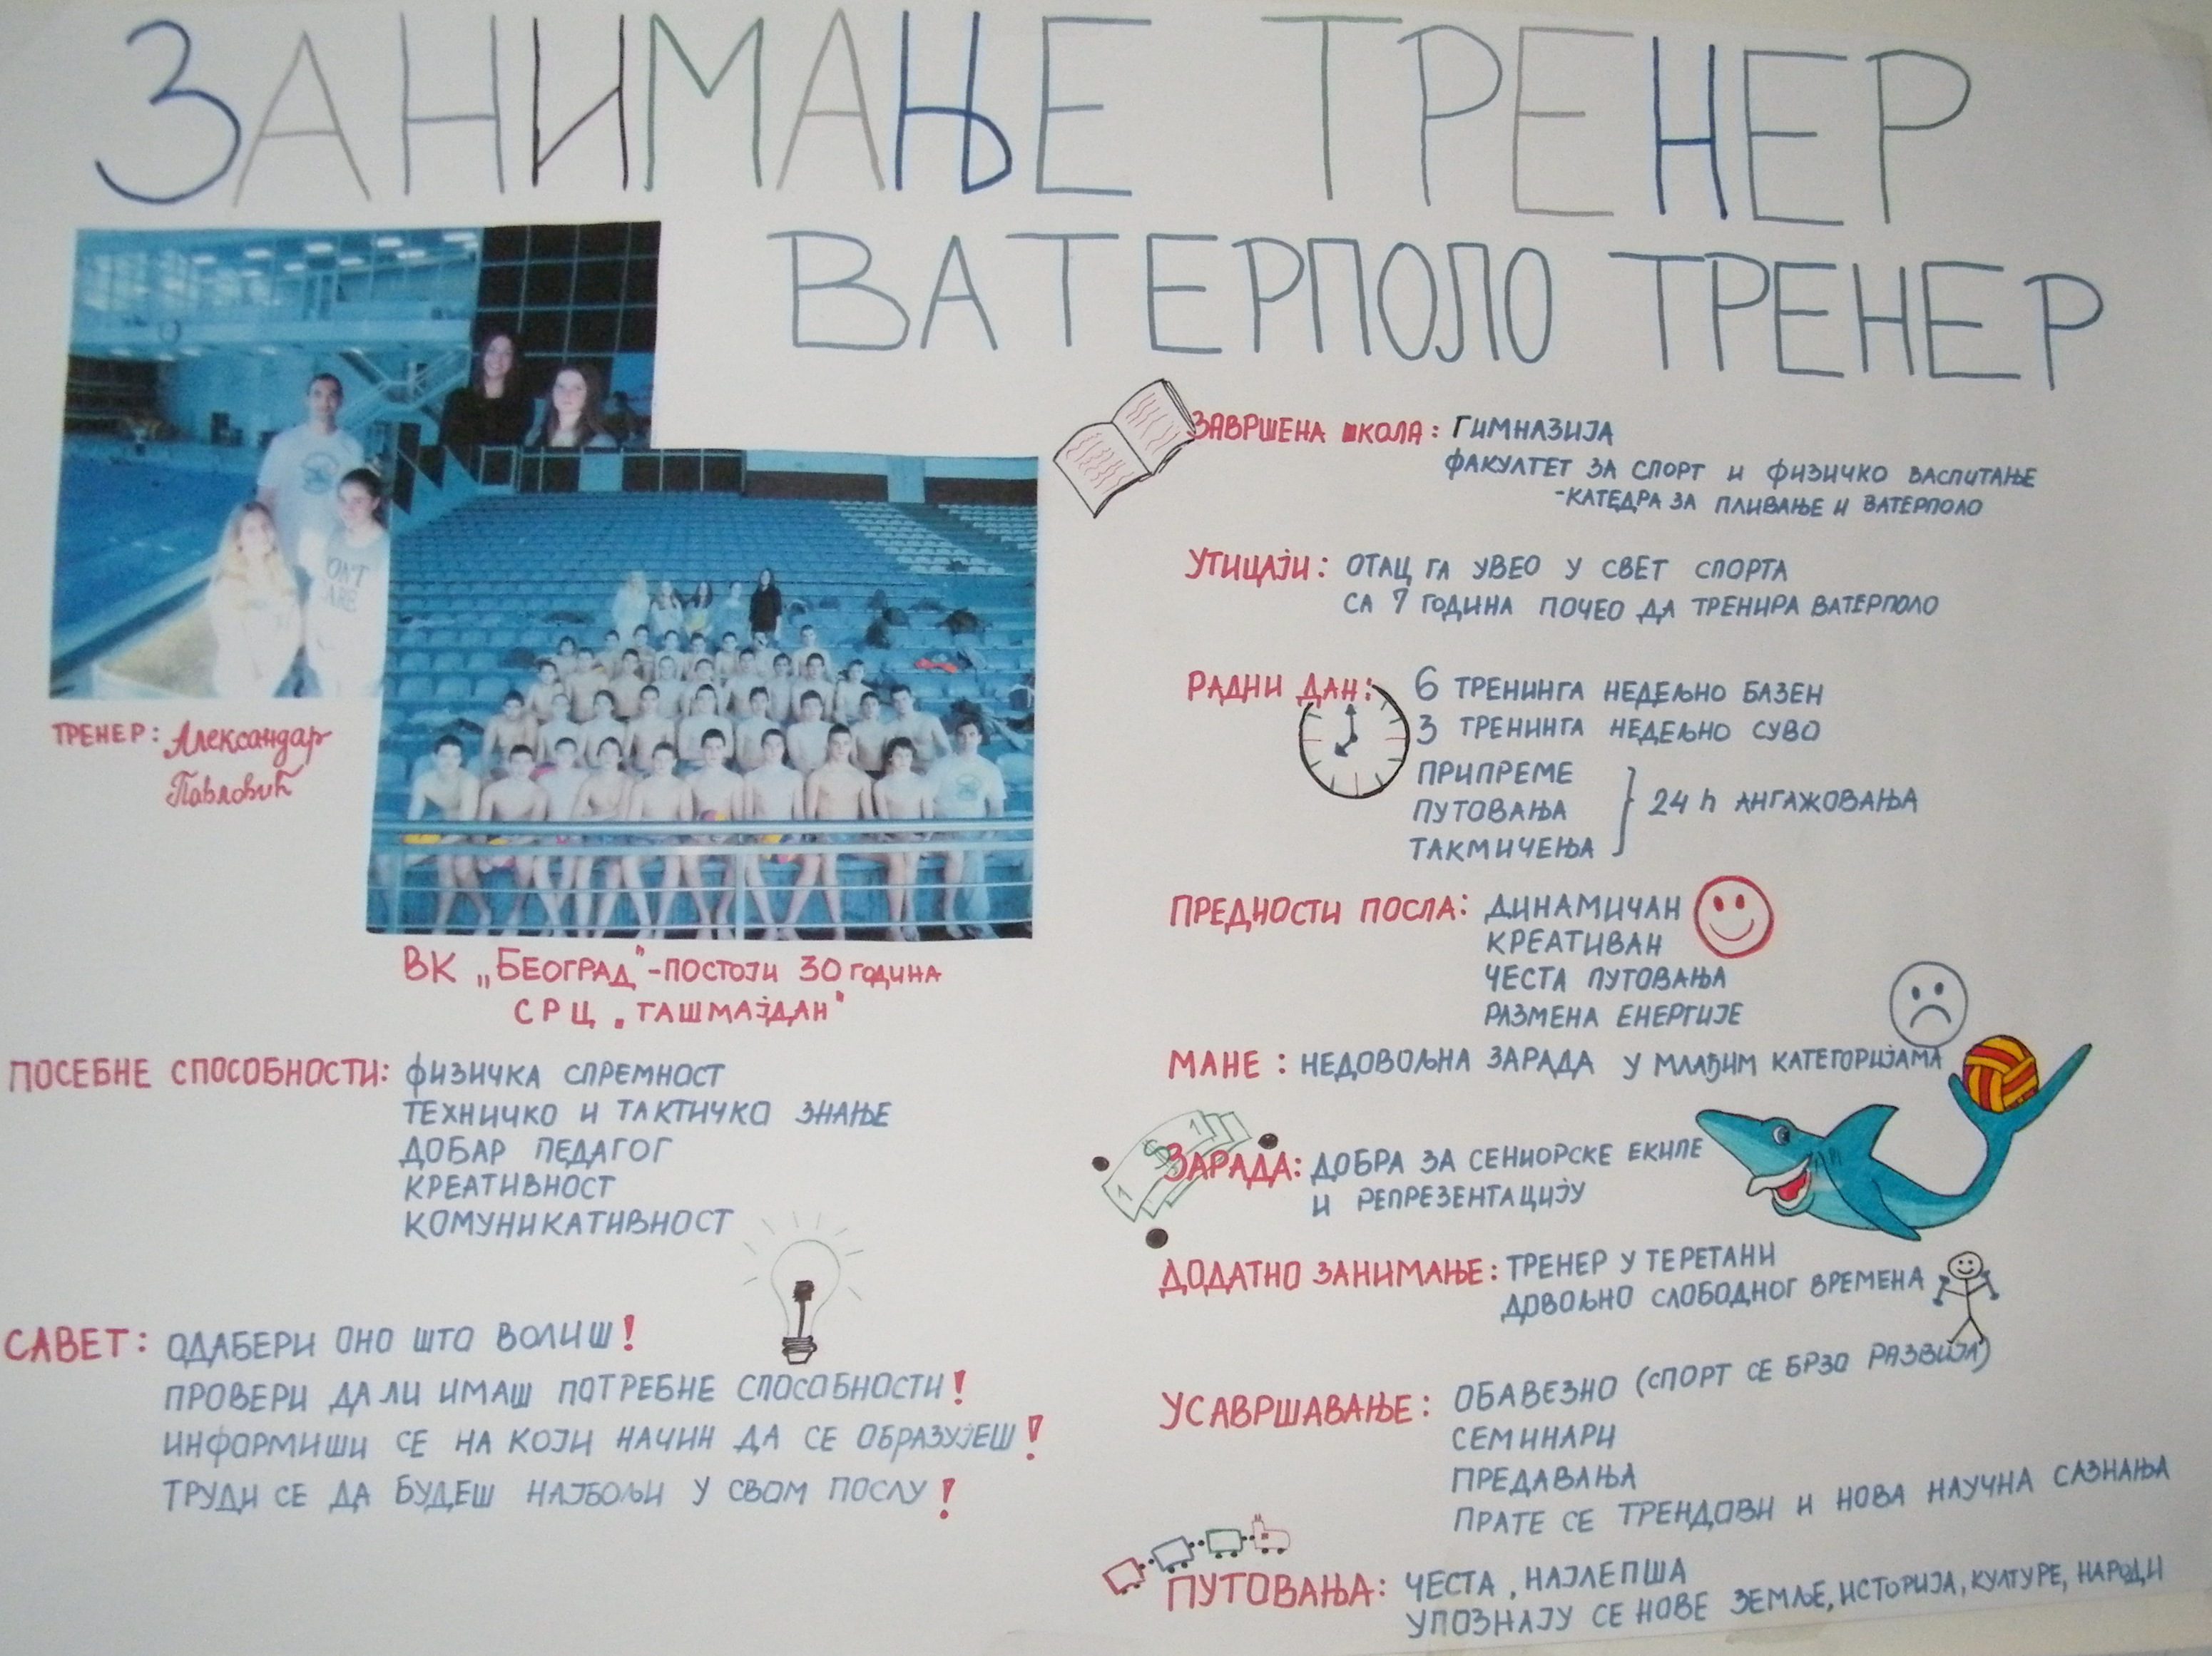 ЗАНИМАЊЕ ТРЕНЕР
ВАТЕРПОЛО ТРЕНЕР
ТРЕНЕР: Александар
Павловић
ВК „БЕОГРАД"-ПОСТОЈИ 30 ГОДИНА
СРЦ „ТАШМАЈДАН"
ПОСЕБНЕ СПОСОБНОСТИ: ФИЗИЧКА СПРЕМНОСТ
ТЕХНИЧКО И ТАКТИЧКО ЗНАЊЕ
ДОБАР ПЕДАГОГ
КРЕАТИВНОСТ
КОМУНИКАТИВНОСТ
САВЕТ: ОДАБЕРИ ОНО ШТО ВОЛИШ!
ПРОВЕРИ ДА ЛИ ИМАШ ПОТРЕБНЕ СПОСОБНОСТИ!
ИНФОРМИШИ СЕ НА КОЈИ НАЧИН ДА СЕ ОБРАЗУЈЕШ!
ТРУДИ СЕ ДА БУДЕШ НАЈБОЉИ У СВОМ ПОСЛУ!
ЗАВРШЕНА ШКОЛА: ГИМНАЗИЈА
ФАКУЛТЕТ ЗА СПОРТ И ФИЗИЧКО ВАСПИТАЊЕ
-КАТЕДРА ЗА ПЛИВАЊЕ И ВАТЕРПОЛО
УТИЦАЈИ: ОТАЦ ГА УВЕО У СВЕТ СПОРТА
СА 7 ГОДИНА ПОЧЕО ДА ТРЕНИРА ВАТЕРПОЛО
РАДНИ ДАН: 6 ТРЕНИНГА НЕДЕЉНО БАЗЕН
3 ТРЕНИНГА НЕДЕЉНО СУВО
ПРИПРЕМЕ
ПУТОВАЊА } 24 h АНГАЖОВАЊА
ТАКМИЧЕЊА
ПРЕДНОСТИ ПОСЛА: ДИНАМИЧАН
КРЕАТИВАН
ЧЕСТА ПУТОВАЊА
РАЗМЕНА ЕНЕРГИЈЕ
МАНЕ: НЕДОВОЉНА ЗАРАДА У МЛАЂИМ КАТЕГОРИЈАМА
ЗАРАДА: ДОБРА ЗА СЕНИОРСКЕ ЕКИПЕ
И РЕПРЕЗЕНТАЦИЈУ
ДОДАТНО ЗАНИМАЊЕ: ТРЕНЕР У ТЕРЕТАНИ
ДОВОЉНО СЛОБОДНОГ ВРЕМЕНА
УСАВРШАВАЊЕ: ОБАВЕЗНО (СПОРТ СЕ БРЗО РАЗВИЈА)
СЕМИНАРИ
ПРЕДАВАЊА
ПРАТЕ СЕ ТРЕНДОВИ И НОВА НАУЧНА САЗНАЊА
ПУТОВАЊА: ЧЕСТА, НАЈЛЕПША
УПОЗНАЈУ СЕ НОВЕ ЗЕМЉЕ, ИСТОРИЈА, КУЛТУРЕ, НАРОДИ